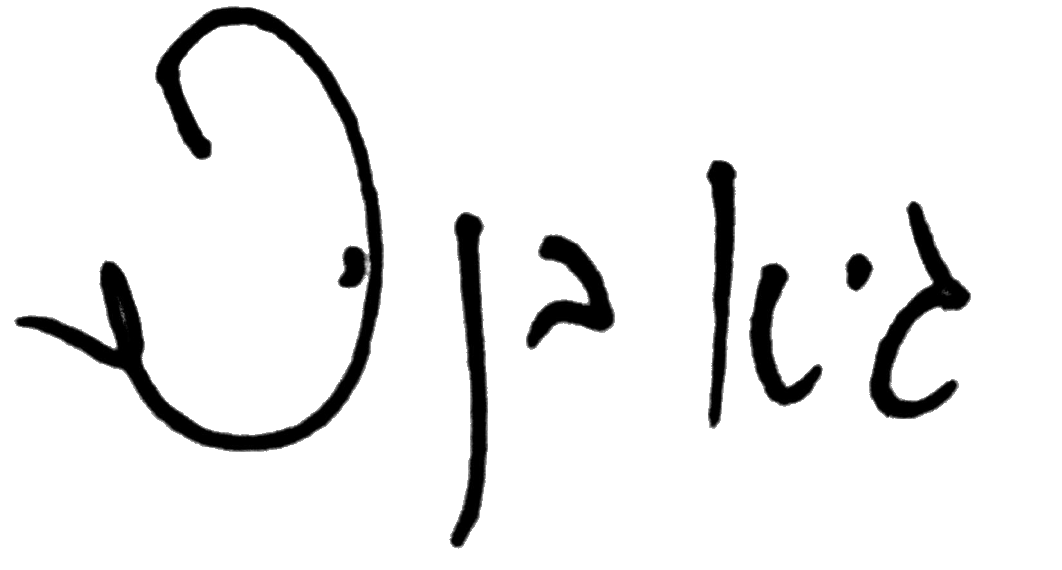 גיא בן